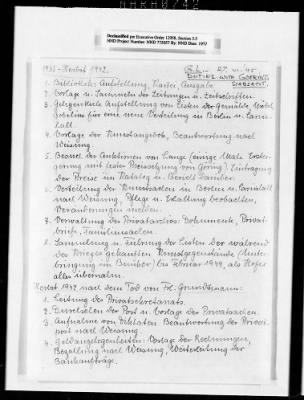 Declassified per Executive Order 12958, Section 3.5
NND Project Number: NND 775057 By: NND Date: 1977
1937-Herbst 1942.
G.L. 27. VI. 45
DUTIES WITH GOERING
1. Bibliothek: Aufstellung, Kartei, Ausgabe.
2. Vorlage u. Sammeln der Zeitungen u. Zeitschriften.
3. Gelegentliche Aufstellung von Listen der Gemälde, Möbel,
Gobelins für eine neue Verteilung in Berlin u. Carin-
hall
4. Vorlage der Kunstangebote, Beantwortung nach
Weisung.
5. Besuch der Auktionen von Lange (einige Male Erstei-
gerung mit fester Preissetzung von Göring). Eintragung
der Preise im Katalog u. Bericht darüber.
6. Verteilung der Kunstsachen in Berlin u. Carinhall
nach Weisung, Pflege u. Erhaltung beobachten,
Veränderungen melden.
7. Verwaltung des Privatarchivs: Dokumente, Privat-
briefe, Familiensachen.
8. Sammlung u. Führung der Listen der während
des Krieges gekauften Kunstgegenstände (Unter-
bringung im Bunker) bis Februar 1944, als Hofer
alles übernahm.
Herbst 1942 nach dem Tod von Frl. Grundtmann:
1. Leitung des Privatsekretariats.
2. Durchsehen der Post u. Vorlage der Privatsachen.
3. Aufnahme von Diktaten Beantwortung der Privat-
post nach Weisung.
4. Geldangelegenheiten: Vorlage der Rechnungen,
Bezahlung nach Weisung, Weiterleitung der
Bankaufträge.